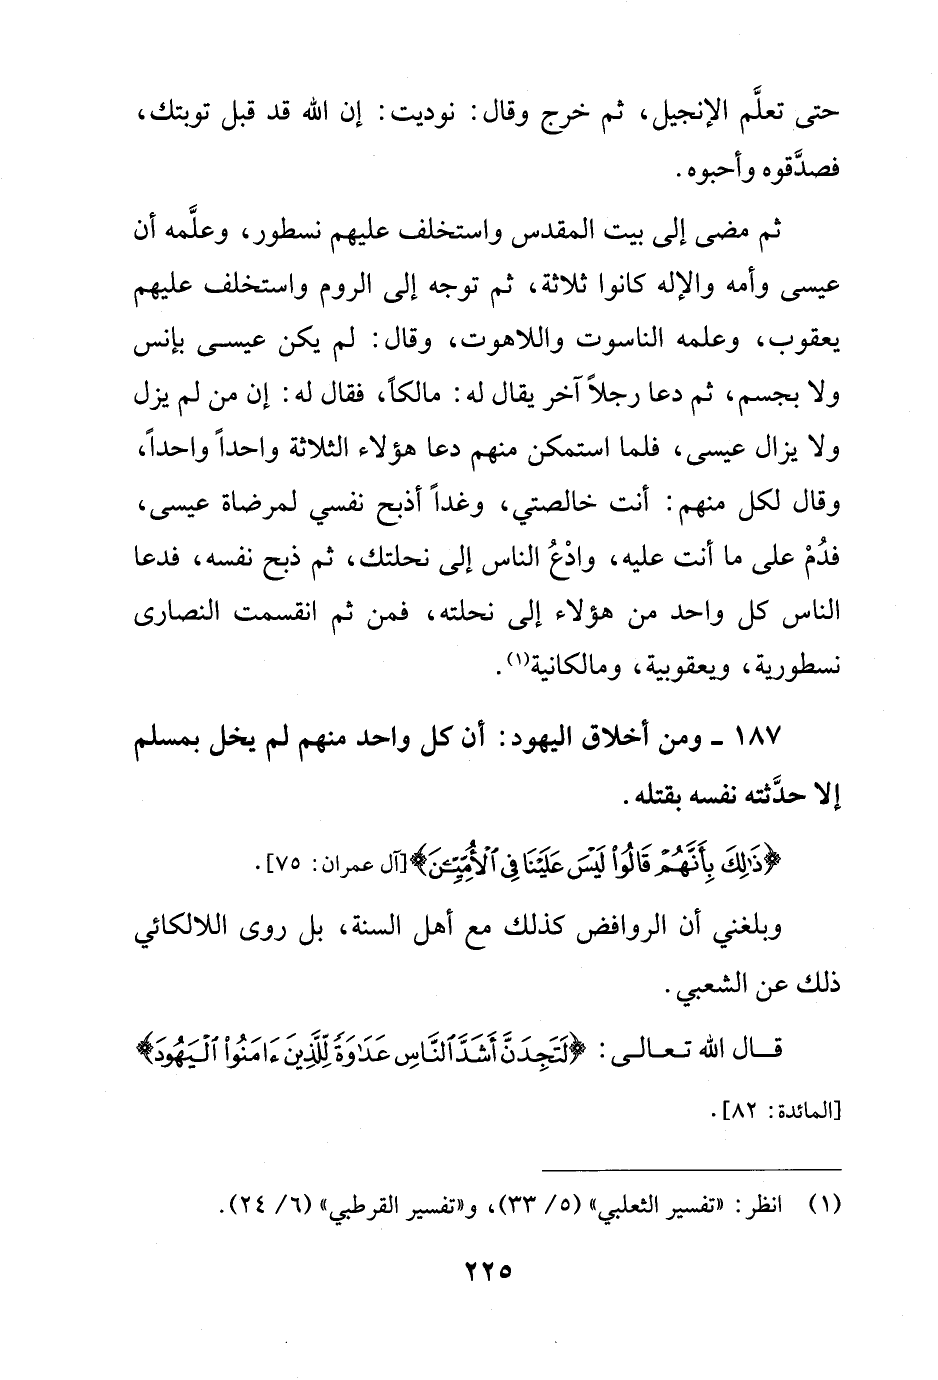 حتى تعلَّم الإنجيل، ثم خرج وقال: نوديت: إن الله قد قبل توبتك،
فصدَّقوه وأحبوه.
ثم مضى إلى بيت المقدس واستخلف عليهم نسطور، وعلَّمه أن
عيسى وأمه والإله كانوا ثلاثة، ثم توجه إلى الروم واستخلف عليهم
يعقوب، وعلمه الناسوت واللاهوت، وقال: لم يكن عيسى بإنس
ولا بجسم، ثم دعا رجلاً آخر يقال له: مالكاً، فقال له: إن من لم يزل
ولا يزال عيسى، فلما استمكن منهم دعا هؤلاء الثلاثة واحداً واحداً،
وقال لكل منهم: أنت خالصتي، وغداً أذبح نفسي لمرضاة عيسى،
فدُمْ على ما أنت عليه، وادْعُ الناس إلى نحلتك، ثم ذبح نفسه، فدعا
الناس كل واحد من هؤلاء إلى نحلته، فمن ثم انقسمت النصارى
نسطورية، ويعقوبية، ومالكانية(١).
١٨٧ ـ ومن أخلاق اليهود: أن كل واحد منهم لم يخل بمسلم
إلا حدَّثته نفسه بقتله.
﴿ذَٰلِكَ بِأَنَّهُمْ قَالُوا۟ لَيْسَ عَلَيْنَا فِى ٱلْأُمِّيِّـۧنَ﴾ [آل عمران: ٧٥].
وبلغني أن الروافض كذلك مع أهل السنة، بل روى اللالكائي
ذلك عن الشعبي.
قال الله تعالى: ﴿لَتَجِدَنَّ أَشَدَّ ٱلنَّاسِ عَدَٰوَةً لِّلَّذِينَ ءَامَنُوا۟ ٱلْيَهُودَ﴾
[المائدة: ٨٢].
(١) انظر: «تفسير الثعلبي» (٥/ ٣٣)، و«تفسير القرطبي» (٦/ ٢٤).
٢٢٥